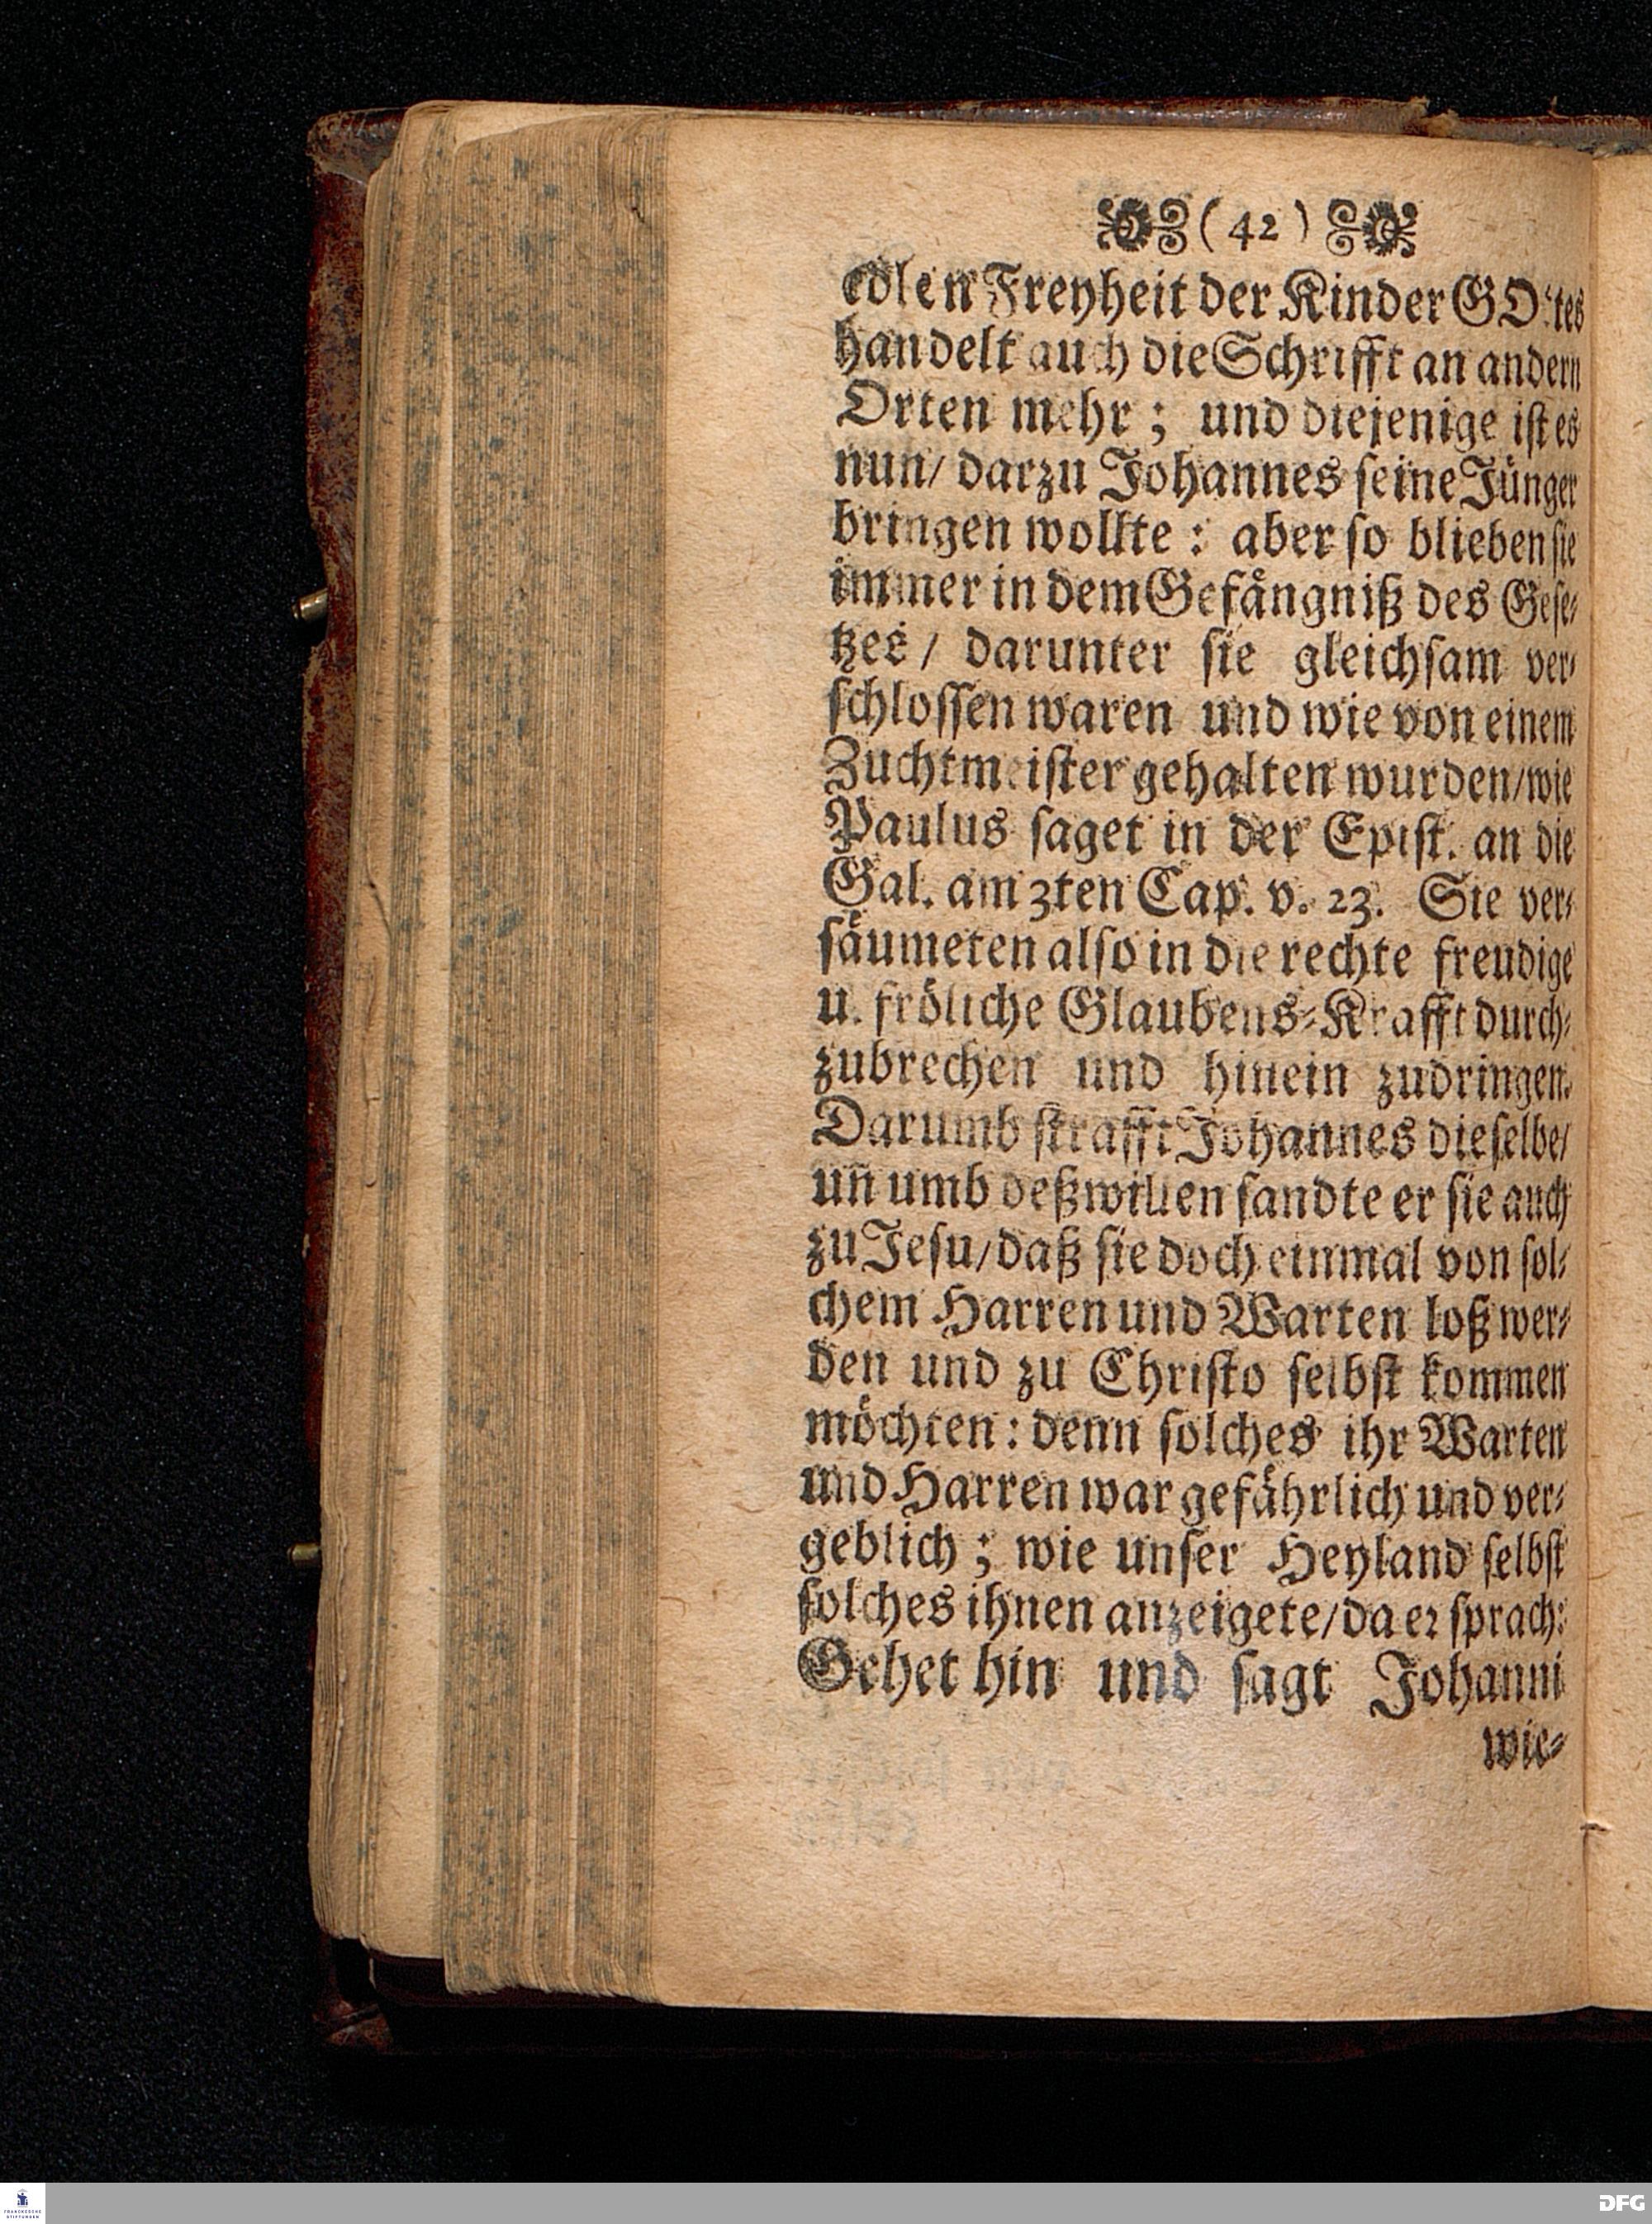 ( 42 )
edlen Freyheit der Kinder GOttes
handelt auch die Schrifft an andern
Orten mehr; und diejenige ist es
nun/ darzu Johannes seine Jünger
bringen wollte: aber so blieben sie
immer in dem Gefängniß des Gese-
tzes/ darunter sie gleichsam ver-
schlossen waren und wie von einem
Zuchtmeister gehalten wurden/wie
Paulus saget in der Epist. an die
Gal. am 3ten Cap. v. 23. Sie ver-
säumeten also in die rechte freudige
u. fröliche Glaubens-Krafft durch-
zubrechen und hinein zudringen.
Darumb strafft Johannes dieselbe/
uñ umb deßwillen sandte er sie auch
zu Jesu/daß sie doch einmal von sol-
chem Harren und Warten loß wer-
den und zu Christo selbst kommen
möchten: denn solches ihr Warten
und Harren war gefährlich und ver-
geblich; wie unser Heyland selbst
solches ihnen anzeigete/da er sprach:
Gehet hin und sagt Johanni
wie-
FRANCKESCHE
STIFTUNGEN
DFG